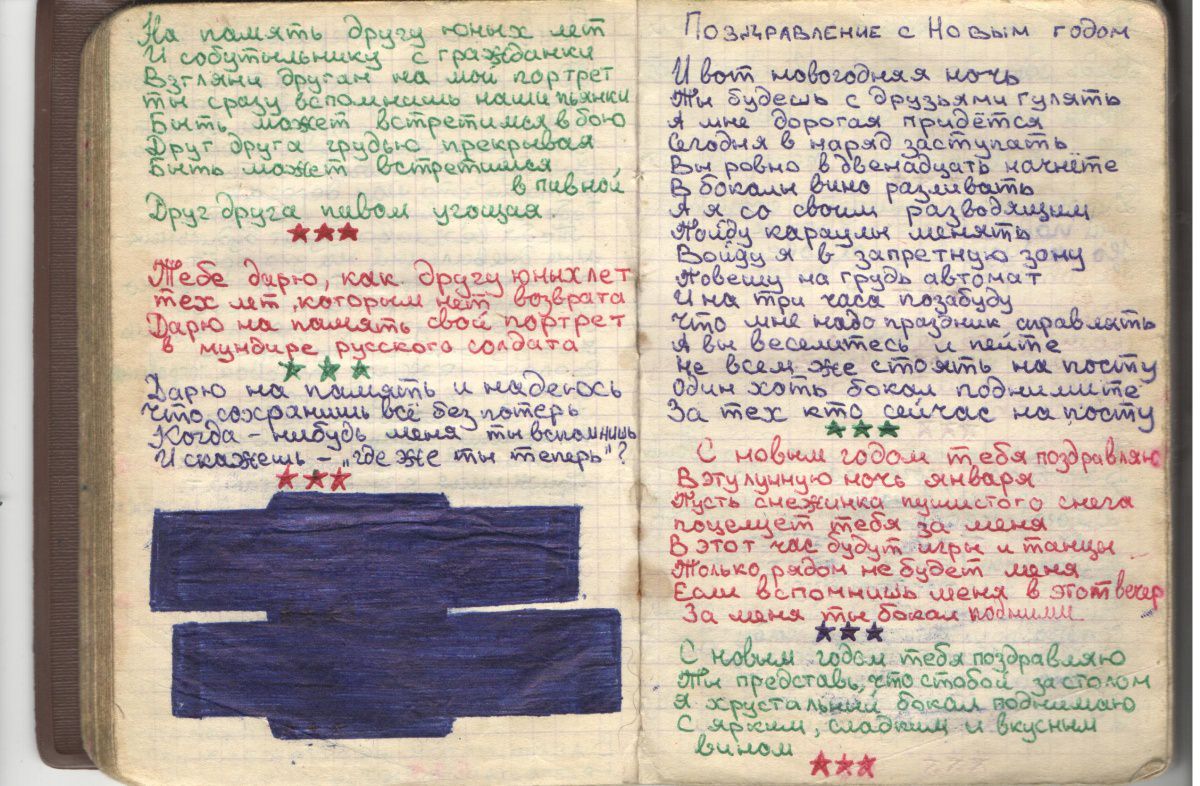 На память другу юных лет
И собутыльнику с гражданки
Взгляни друган на мой портрет
ты сразу вспомнишь наши пьянки
Быть может встретимся в бою
Друг друга грудью прекрывая
Быть может встретимся
в пивной
Друг друга пивом угощая.
Тебе дарю, как другу юных лет
тех лет, которым нет возврата
Дарю на память свой портрет
в мундире русского солдата
Дарю на память и надеюсь
Что сохранишь всё без потерь
Когда-нибудь меня ты вспомнишь
И скажешь – "где же ты теперь"?
Поздравление с Новым годом
И вот новогодняя ночь
Ты будешь с друзьями гулять
А мне дорогая придётся
Сегодня в наряд заступать
Вы ровно в двенадцать начнёте
В бокалы вино разливать
А я со своим разводящим
Пойду караулы менять
Войду я в запретную зону
Повешу на грудь автомат
И на три часа позабуду
Что мне надо праздник справлять
А вы веселитесь и пейте
Не всем же стоять на посту
Один хоть бокал поднимите
За тех кто сейчас на посту
С новым годом тебя поздравляю
В эту лунную ночь января
Пусть снежинка пушистого снега
поцелует тебя за меня
В этот час будут игры и танцы
Только рядом не будет меня
Если вспомнишь меня в этот вечер
За меня ты бокал подними
С новым годом тебя поздравляю
Ты представь, что стобой за столом
Я хрустальный бокал поднимаю
С ярким, сладким и вкусным
вином